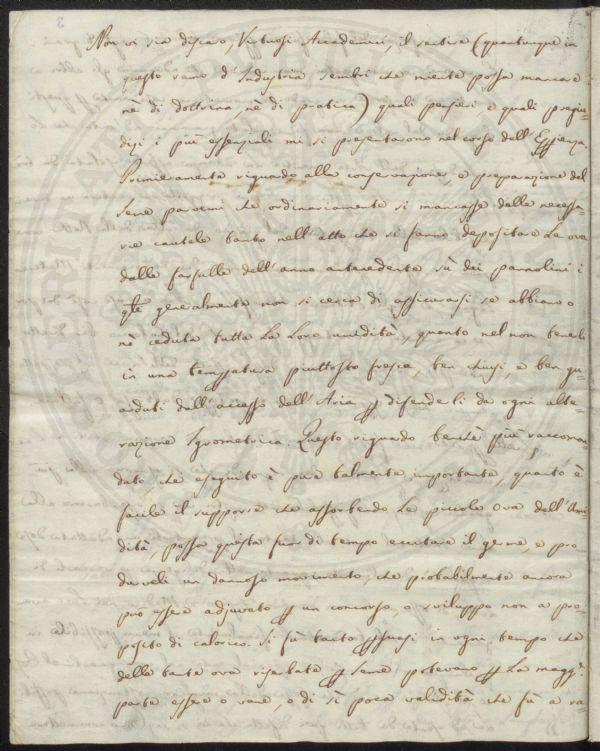 Non vi sia discaro, Virtuosi Accademici, il sentire (quantunque in
questo ramo d'Industria sembri che niente possa mancare
nè di dottrina, nè di pratica) quali pensieri e quali pregiu-
dizj i più essenziali mi si presentarono nel corso dell'
Primieramente riguardo alla conservazione, e preparazione del
Seme parvemi che ordinariamente si mancasse delle necessa-
rie cautele tanto nell'atto che si fanno depositare le ova
dalle farfalle dell'anno antecedente sù dei pannolini i
qli generalmente non si cerca di assicurarsi se abbiano o
nè ceduta tutta la loro umidità, quanto nel non tenerli
in una temperatura piuttosto fresca, ben chiusi e ben gu-
ardati dall'accesso dell'Aria p difenderli da ogni alte-
razione Igrometrica. Questo riguardo benchè più raccoman-
dato, che eseguito è pure talmente importante, quanto è
facile il supporre che assorbendo le piccole ova dell'Umi-
dità, possa questa fuor di tempo eccitare il germe, e pro-
durveli un dannoso movimento, che probabilmente ancora
può essere adjuvato p un concorso, o sviluppo non a pro-
posito di calorico. Si fù tanto psuasi in ogni tempo che
delle tante ova riserbate p seme potevano p la magg.
parte essere o vane, o di sì poca validità che fù a va-